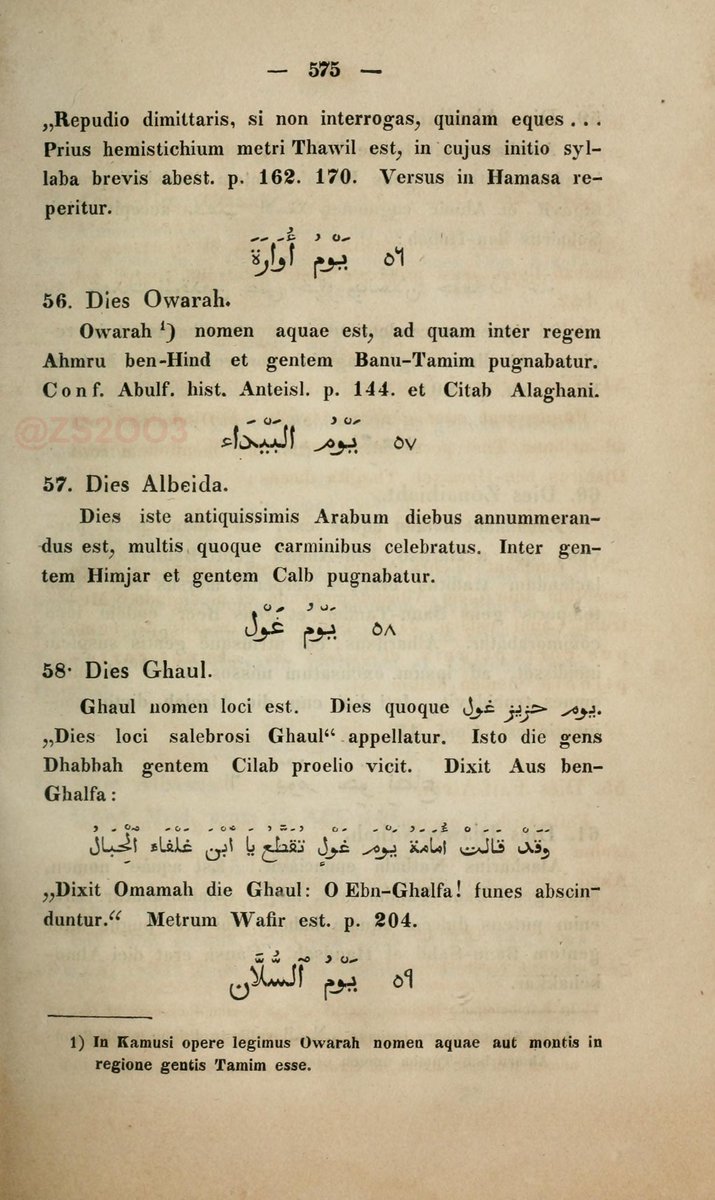 — 575 —
„Repudio dimittaris, si non interrogas, quinam eques . . .
Prius hemistichium metri Thawil est, in cujus initio syl-
laba brevis abest. p. 162. 170. Versus in Hamasa re-
peritur.
٥٦ يَوْمُ أُوَارَةَ
56. Dies Owarah.
Owarah ¹) nomen aquae est, ad quam inter regem
Ahmru ben-Hind et gentem Banu-Tamim pugnabatur.
Conf. Abulf. hist. Anteisl. p. 144. et Citab Alaghani.
@ZS2003
٥٧ يَوْمُ ٱلْبَيْدَاءِ
57. Dies Albeida.
Dies iste antiquissimis Arabum diebus annummeran-
dus est, multis quoque carminibus celebratus. Inter gen-
tem Himjar et gentem Calb pugnabatur.
٥٨ يَوْمُ غَوْلٍ
58. Dies Ghaul.
Ghaul nomen loci est. Dies quoque يوم حزيز غول.
„Dies loci salebrosi Ghaul“ appellatur. Isto die gens
Dhabbah gentem Cilab proelio vicit. Dixit Aus ben-
Ghalfa:
وَقَدْ قَالَتْ أُمَامَةُ يَوْمَ غَوْلٍ تَقَطَّعُ يَا ٱبْنَ غَلْفَاءَ ٱلْحِبَالُ
„Dixit Omamah die Ghaul: O Ebn-Ghalfa! funes abscin-
duntur.“ Metrum Wafir est. p. 204.
٥٩ يَوْمُ ٱلسُّلَّانِ
1) In Kamusi opere legimus Owarah nomen aquae aut montis in
regione gentis Tamim esse.